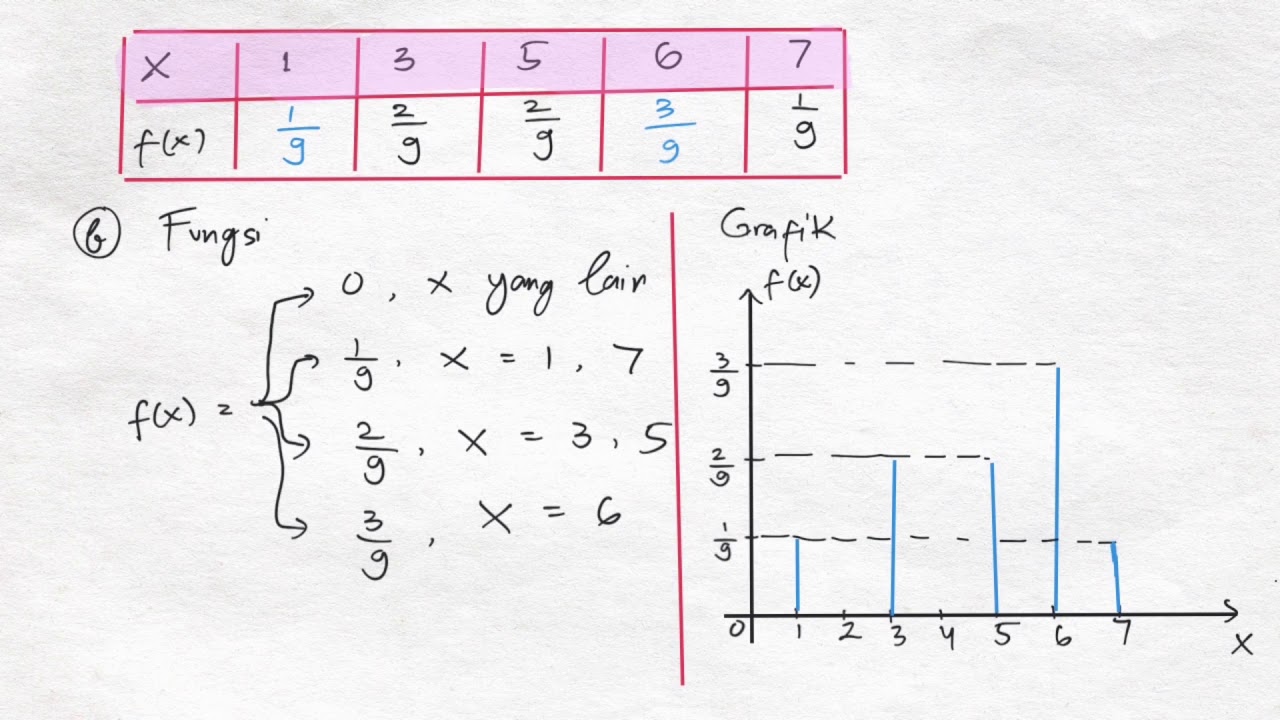 x 1 3 5 6 7
f(x) 1/9 2/9 2/9 3/9 1/9
b Fungsi
f(x) =
0, x yang lain
1/9, x = 1, 7
2/9, x = 3, 5
3/9, x = 6
Grafik
f(x)
3/9
2/9
1/9
0 1 2 3 4 5 6 7
x